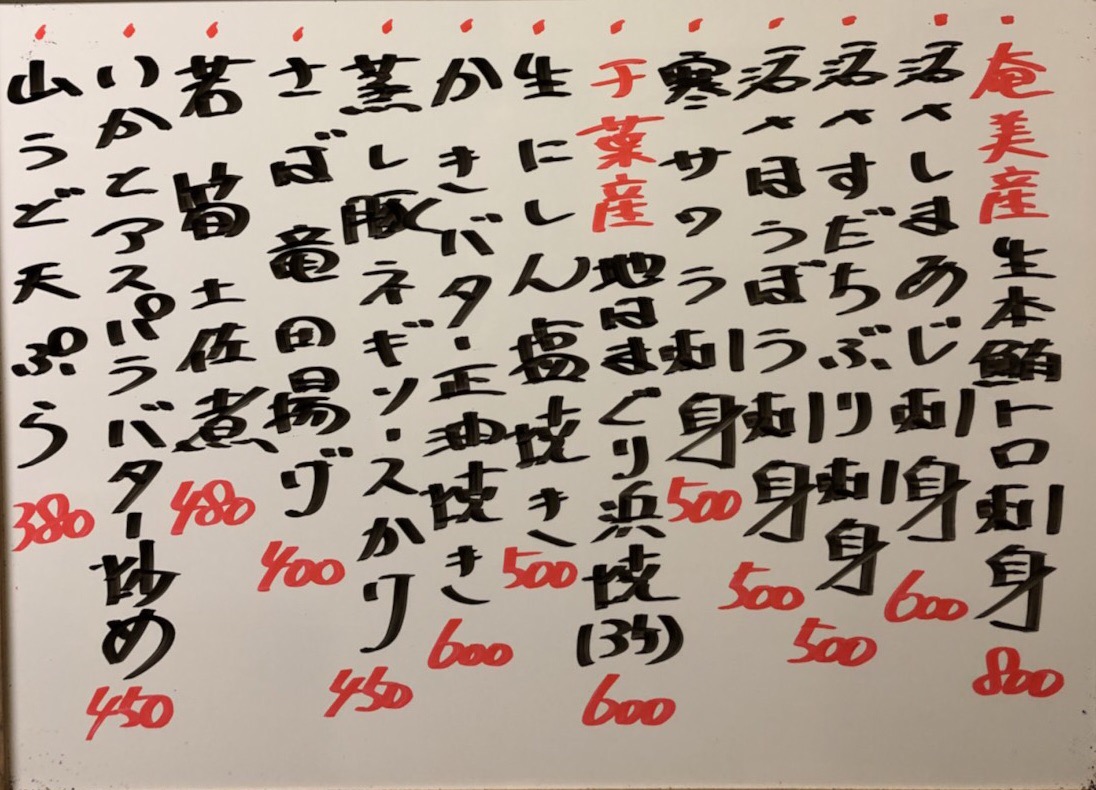 奄美産 生本鮪トロ刺身 800
活〆しまあじ刺身 600
活〆すだちぶり刺身 500
活〆ほうぼう刺身 500
寒サワラ刺身 500
千葉産 地はまぐり浜焼(3ヶ) 600
生にしん塩焼き 500
かきバター正油焼き 600
蒸し豚ネギソースかけ 450
さば竜田揚げ 400
若筍土佐煮 480
いかとアスパラバター炒め 450
山うど天ぷら 380